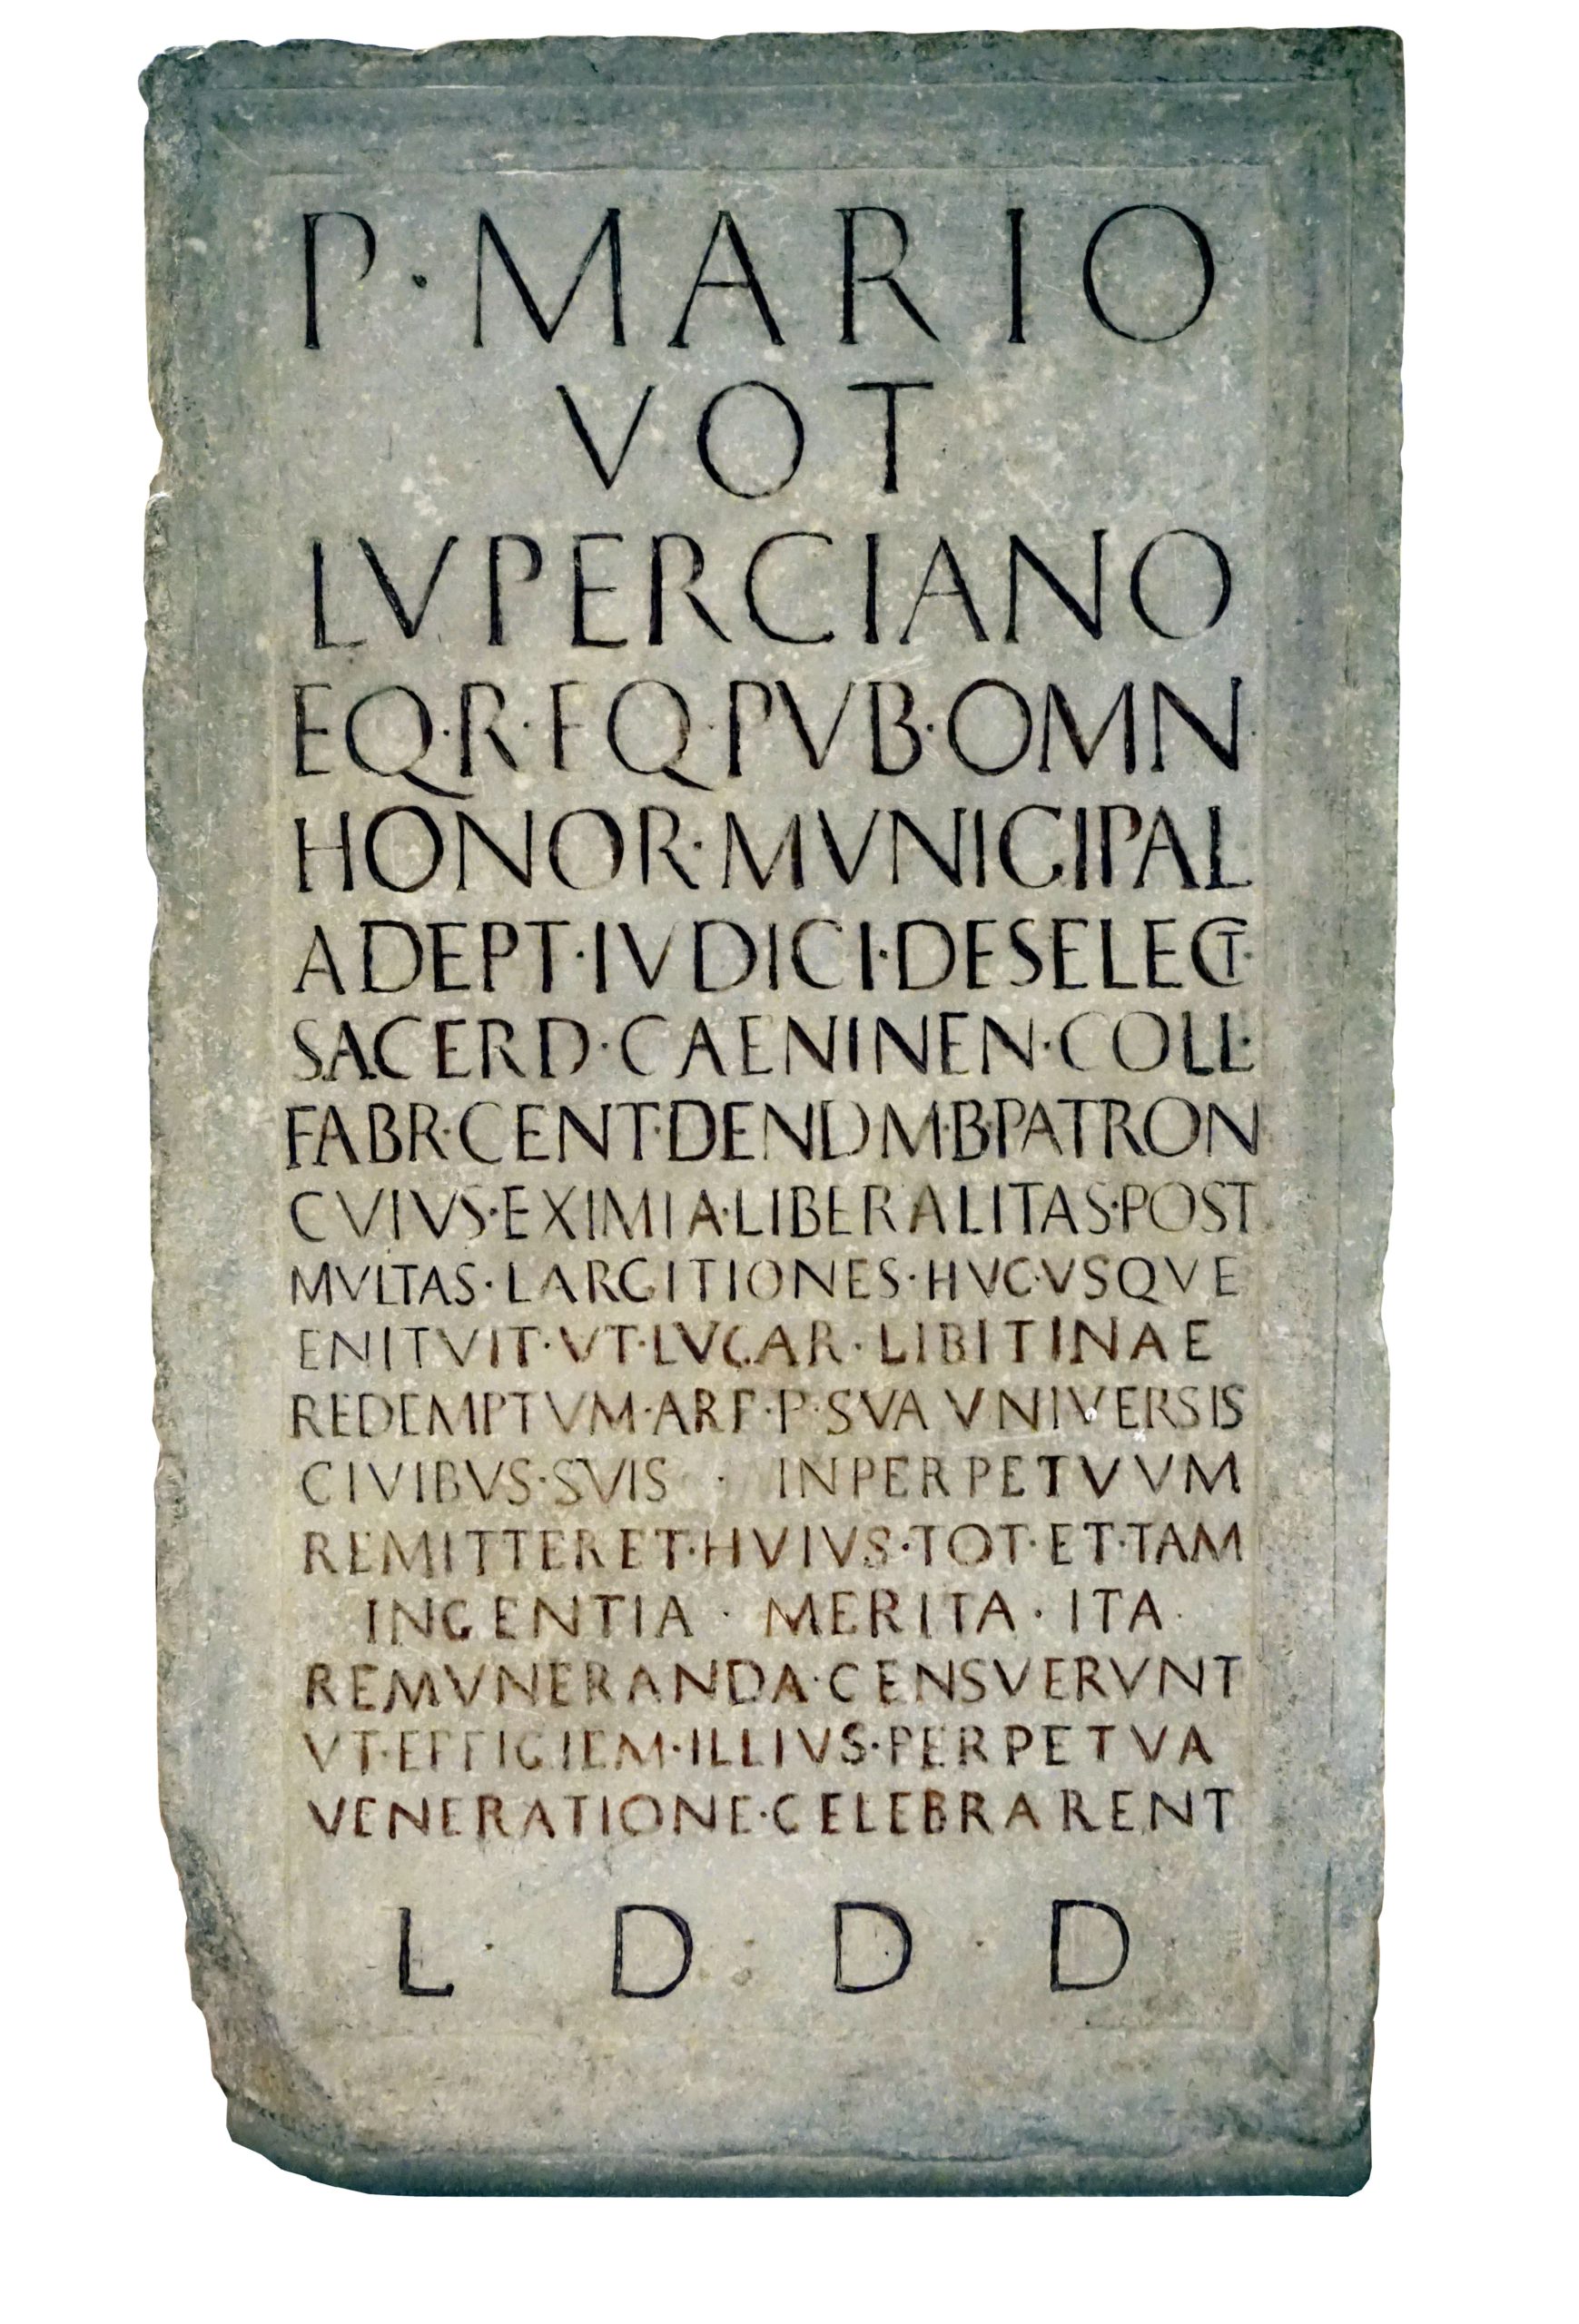 P·MARIO
VOT
LVPERCIANO
EQ·R·EQ·PVB·OMN
HONOR·MVNICIPAL
ADEPT·IVDICI·DESELECT·
SACERD·CAENINEN·COLL·
FABR·CENT·DENDM·B·PATRON
CVIVS·EXIMIA·LIBERALITAS·POST
MVLTAS·LARGITIONES·HVC·VSQVE
ENITVIT·VT·LVCAR·LIBITINAE
REDEMPTVM·A RE·P·SVA VNIVERSIS
CIVIBVS·SVIS · INPERPETVVM
REMITTERET·HVIVS·TOT·ET·TAM
INGENTIA · MERITA · ITA·
REMVNERANDA·CENSVERVNT
VT·EFFIGIEM·ILLIVS·PERPETVA
VENERATIONE·CELEBRARENT
L· D · D · D